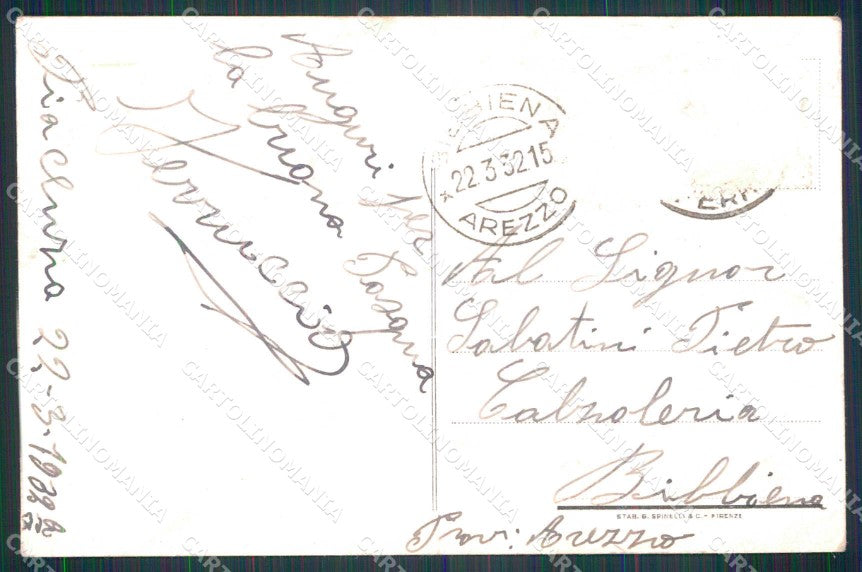 Auguri per
la buona Pasqua
Ferruccio
22-3-1932
BIBBIENA
22.3.32 15
AREZZO
Al Signor
Sabatini Pietro
Calzoleria
Bibbiena
Prov: Arezzo
STAB. G. SPINELLI & C. - FIRENZE
CARTOLINOMANIA